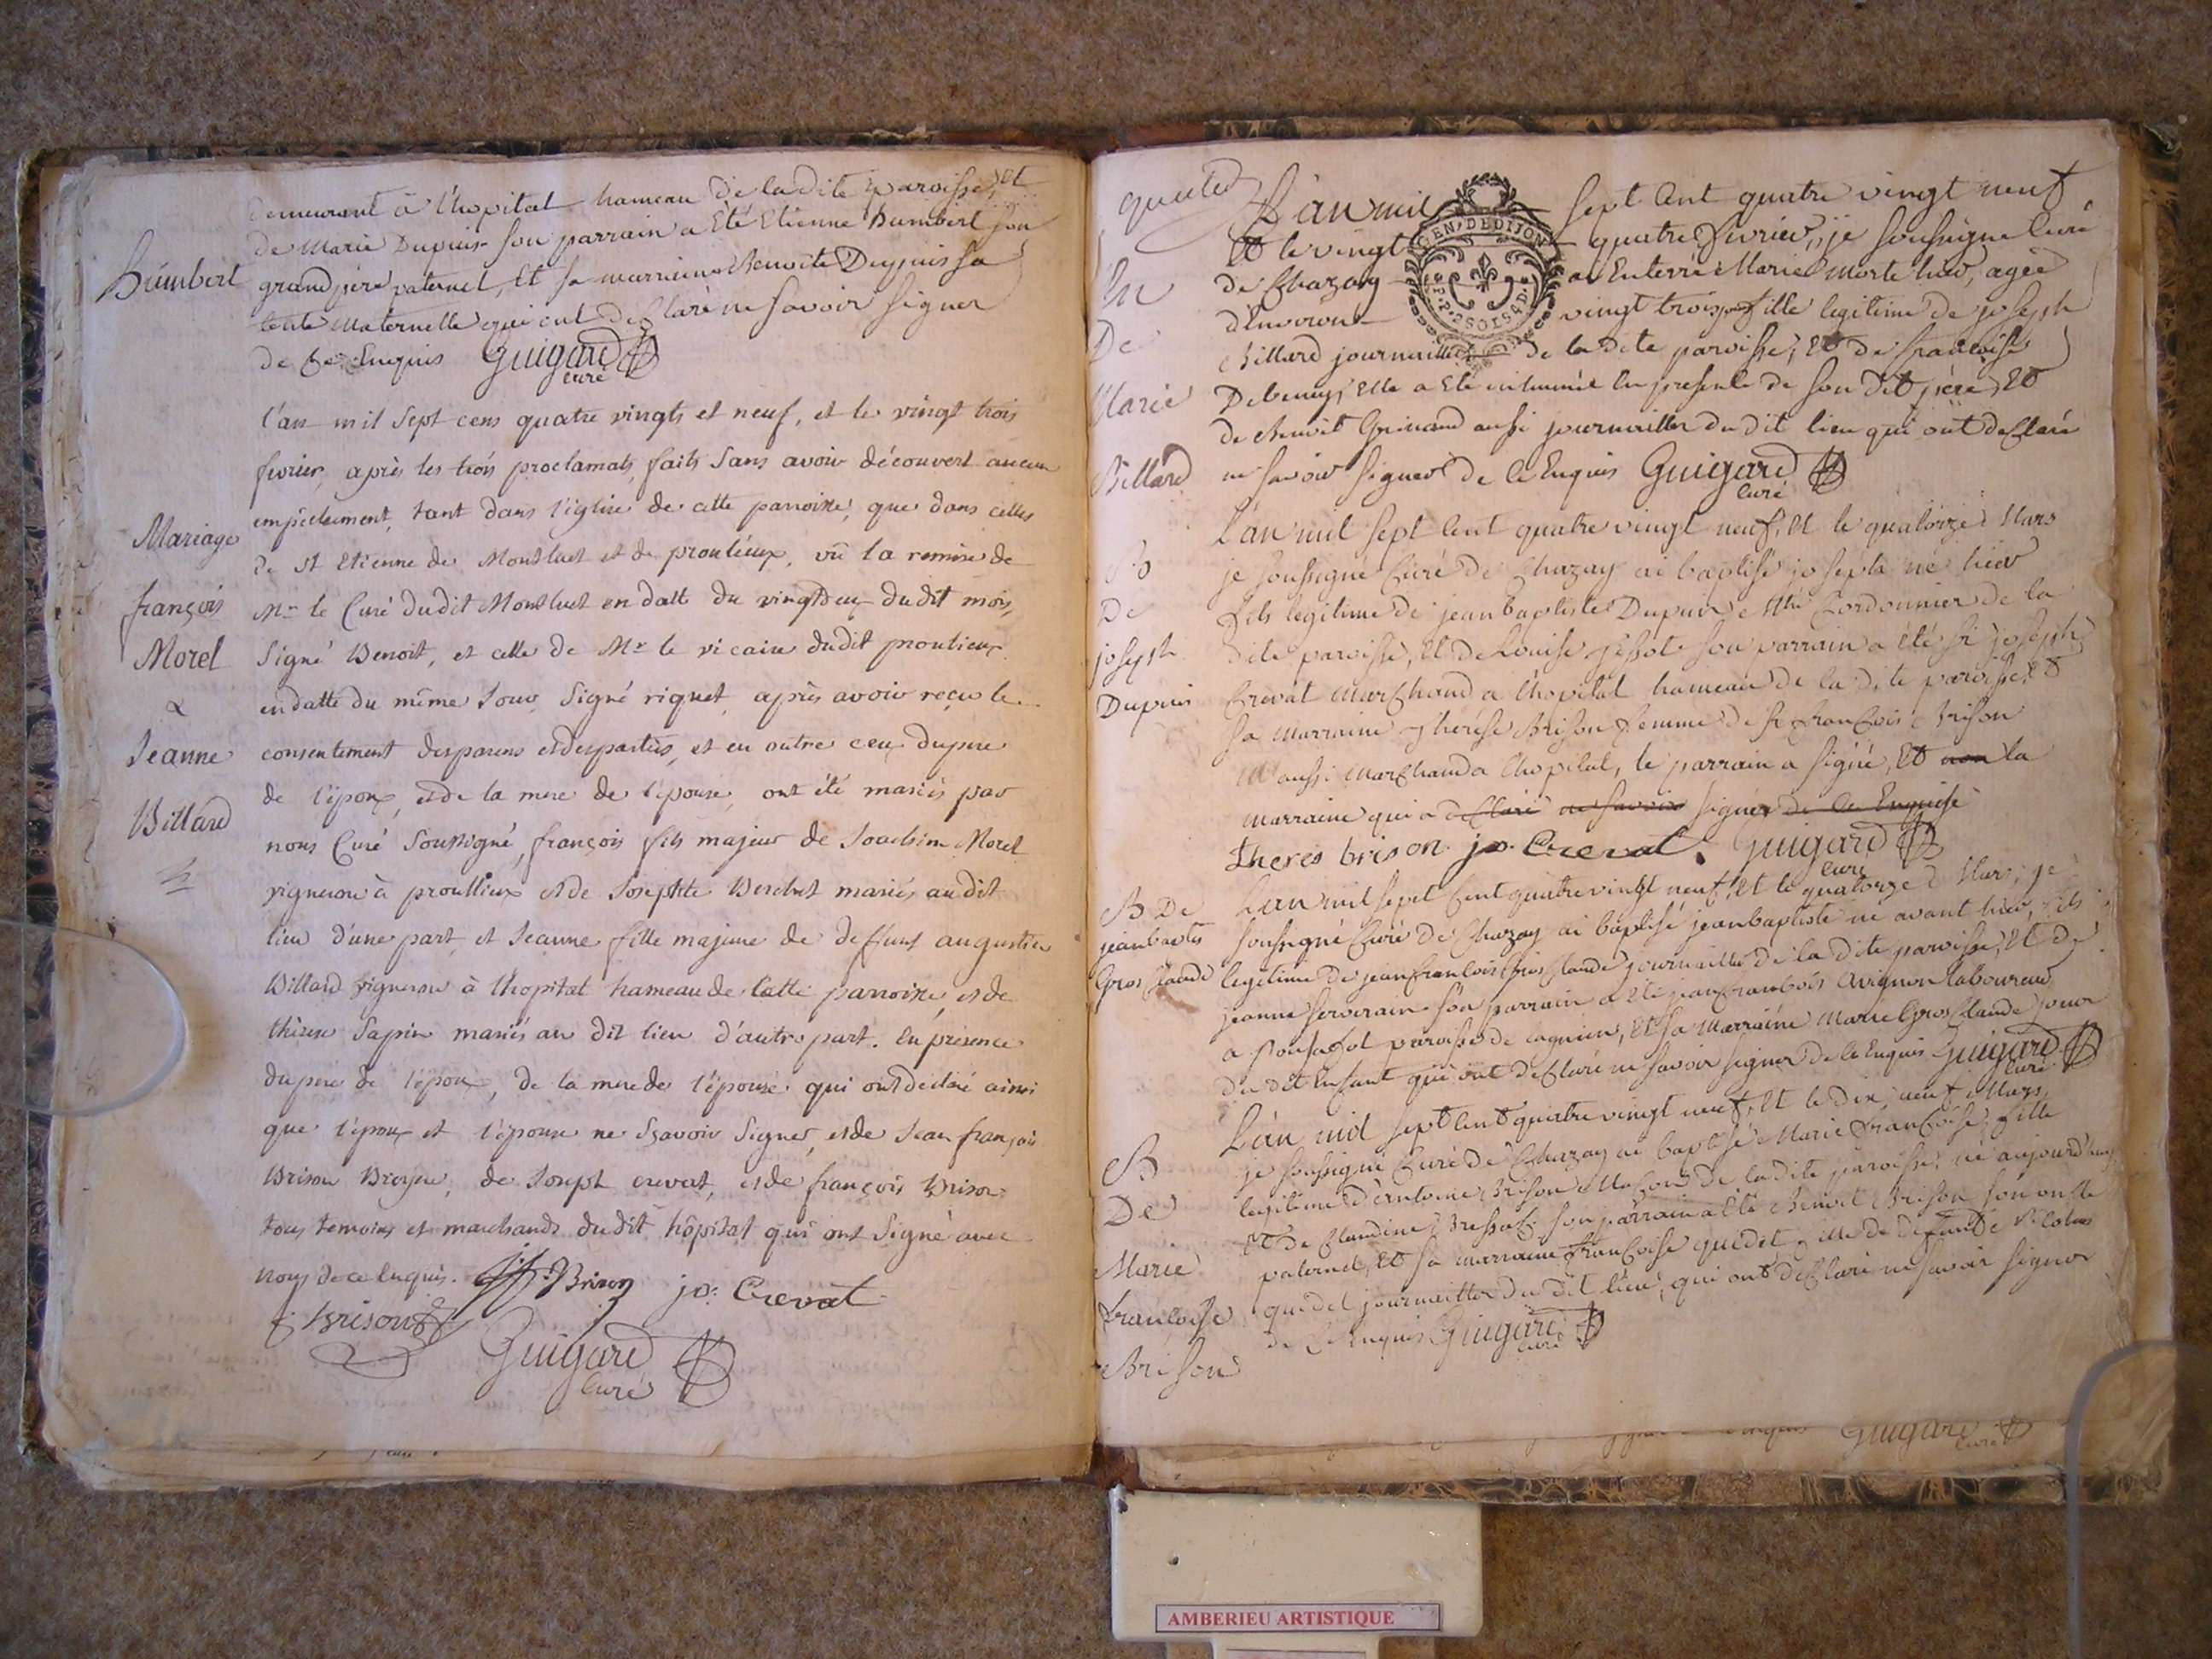 demeurant à l'hopital hameau de ladite paroisse, et
de Marie Dupuis son parrain a Eté Etienne humbert son
humbert grand père paternel, Et sa marraine Benoite Dupuis sa
tente Maternelle qui ont deClaré ne savoir signer
de Ce Enquis Guigard
curé
l'an mil Sept cens quatre vingts et neuf, et le vingt trois
fevrier, après les trois proclamats faits Sans avoir découvert aucun
empêchement, tant dans l'église de cette paroisse, que dans celles
Mariage de St Etienne de Montluel et de proulieux, vû la remise de
françois Mr le Curé dudit Montluel en datte du vingtdeux dudit mois,
Morel Signé Benoit, et celle de Mr le vicaire dudit proulieux
& en datte du même Jour, Signé riquet, après avoir reçu le
Jeanne consentement des parens et des parties, et en outre ceux du pere
Billard de l'époux, et de la mere de l'épouse, ont été mariés par
nous Curé Soussigné, françois fils majeur de Joachim Morel
vigneron à proullieux et de Josephte Berchet mariés audit
lieu d'une part, et Jeanne fille majeure de deffunt augustin
Billard vigneron à l'hopital hameau de Cette paroisse, et de
thérese Sapin mariés au dit lieu d'autre part. En présence
du pere de l'époux, de la mere de l'épouse qui ont déclaré ainsi
que l'époux et l'épouse ne Sçavoir Signer, et de Jean françois
Brison Broyeur, de Joseph crevat, et de françois Brison
tous temoins et marchands dudit hôpital qui ont Signé avec
nous de ce Enquis. jf. Brison jp. Crevat
f. Brison
Guigard
Curé
L'an mil sept Cent quatre vingt neuf
Et le vingt quatre fevrier, je soussigné Curé
de Chazay ai Enterré Marie morte hier, agée
d'Environ vingt trois fille legitime de joseph
De Billard journaillier de la dite paroisse, Et de francoise
Marie elle a Eté inhumée En presence de son dit père, Et
de Benoit aussi journaillier du dit lieu qui ont deClaré
Billard ne savoir signer de Ce Enquis Guigard
Curé
L'an mil sept Cent quatre vingt neuf, Et le quatorze Mars
je soussigné Curé de Chazay ai baptisé joseph né hier
De fils legitime de jean baptiste Dupuis Mtre Cordonnier de la
joseph dite paroisse, Et de Louise son parrain a été Sr joseph
Dupuis Crevat Marchand a l'hopital hameau de la dite paroisse, Et
sa Marraine Thérése Brison femme de Sr francois Brison
aussi Marchand a l'hopital, le parrain a signé, Et non la
marraine qui a deClaré ne savoir signer de Ce Enquise
Theres brison jp. Crevat. Guigard
Curé
B De L'an mil sept Cent quatre vingt neuf, Et le quatorze Mars, je
jeanbaptis soussigné Curé de Chazay ai baptisé jeanbaptiste né avant hier, fils
Gros Claude legitime de jean francois Gros Claude journaillier de la dite paroisse, Et de
jeanne serverain son parrain a Eté jeanfrancois avignon laboureur
a paroisse de lagnieu, Et sa Marraine Marie Gros Claude
du dit Enfant qui ont deClaré ne savoir signer de Ce Enquis Guigard
Curé
L'an mil sept Cent quatre vingt neuf, Et le dix neuf Mars,
B je soussigné Curé de Chazay ai baptisé Marie francoise, fille
De legitime d'antoine Brison Macon de la dite paroisse, né aujourd'huy
Et de Claudine son parrain a Eté Benoit Brison son oncle
Marie paternel, Et sa marraine francoise quidet fille de defunt Nicolas
francoise quidet journaillier du dit lieu, qui ont deClaré ne savoir signer
de Ce Enquis Guigard
curé
Brison
Guigard
curé
GEN. DE DIJON
AMBERIEU ARTISTIQUE